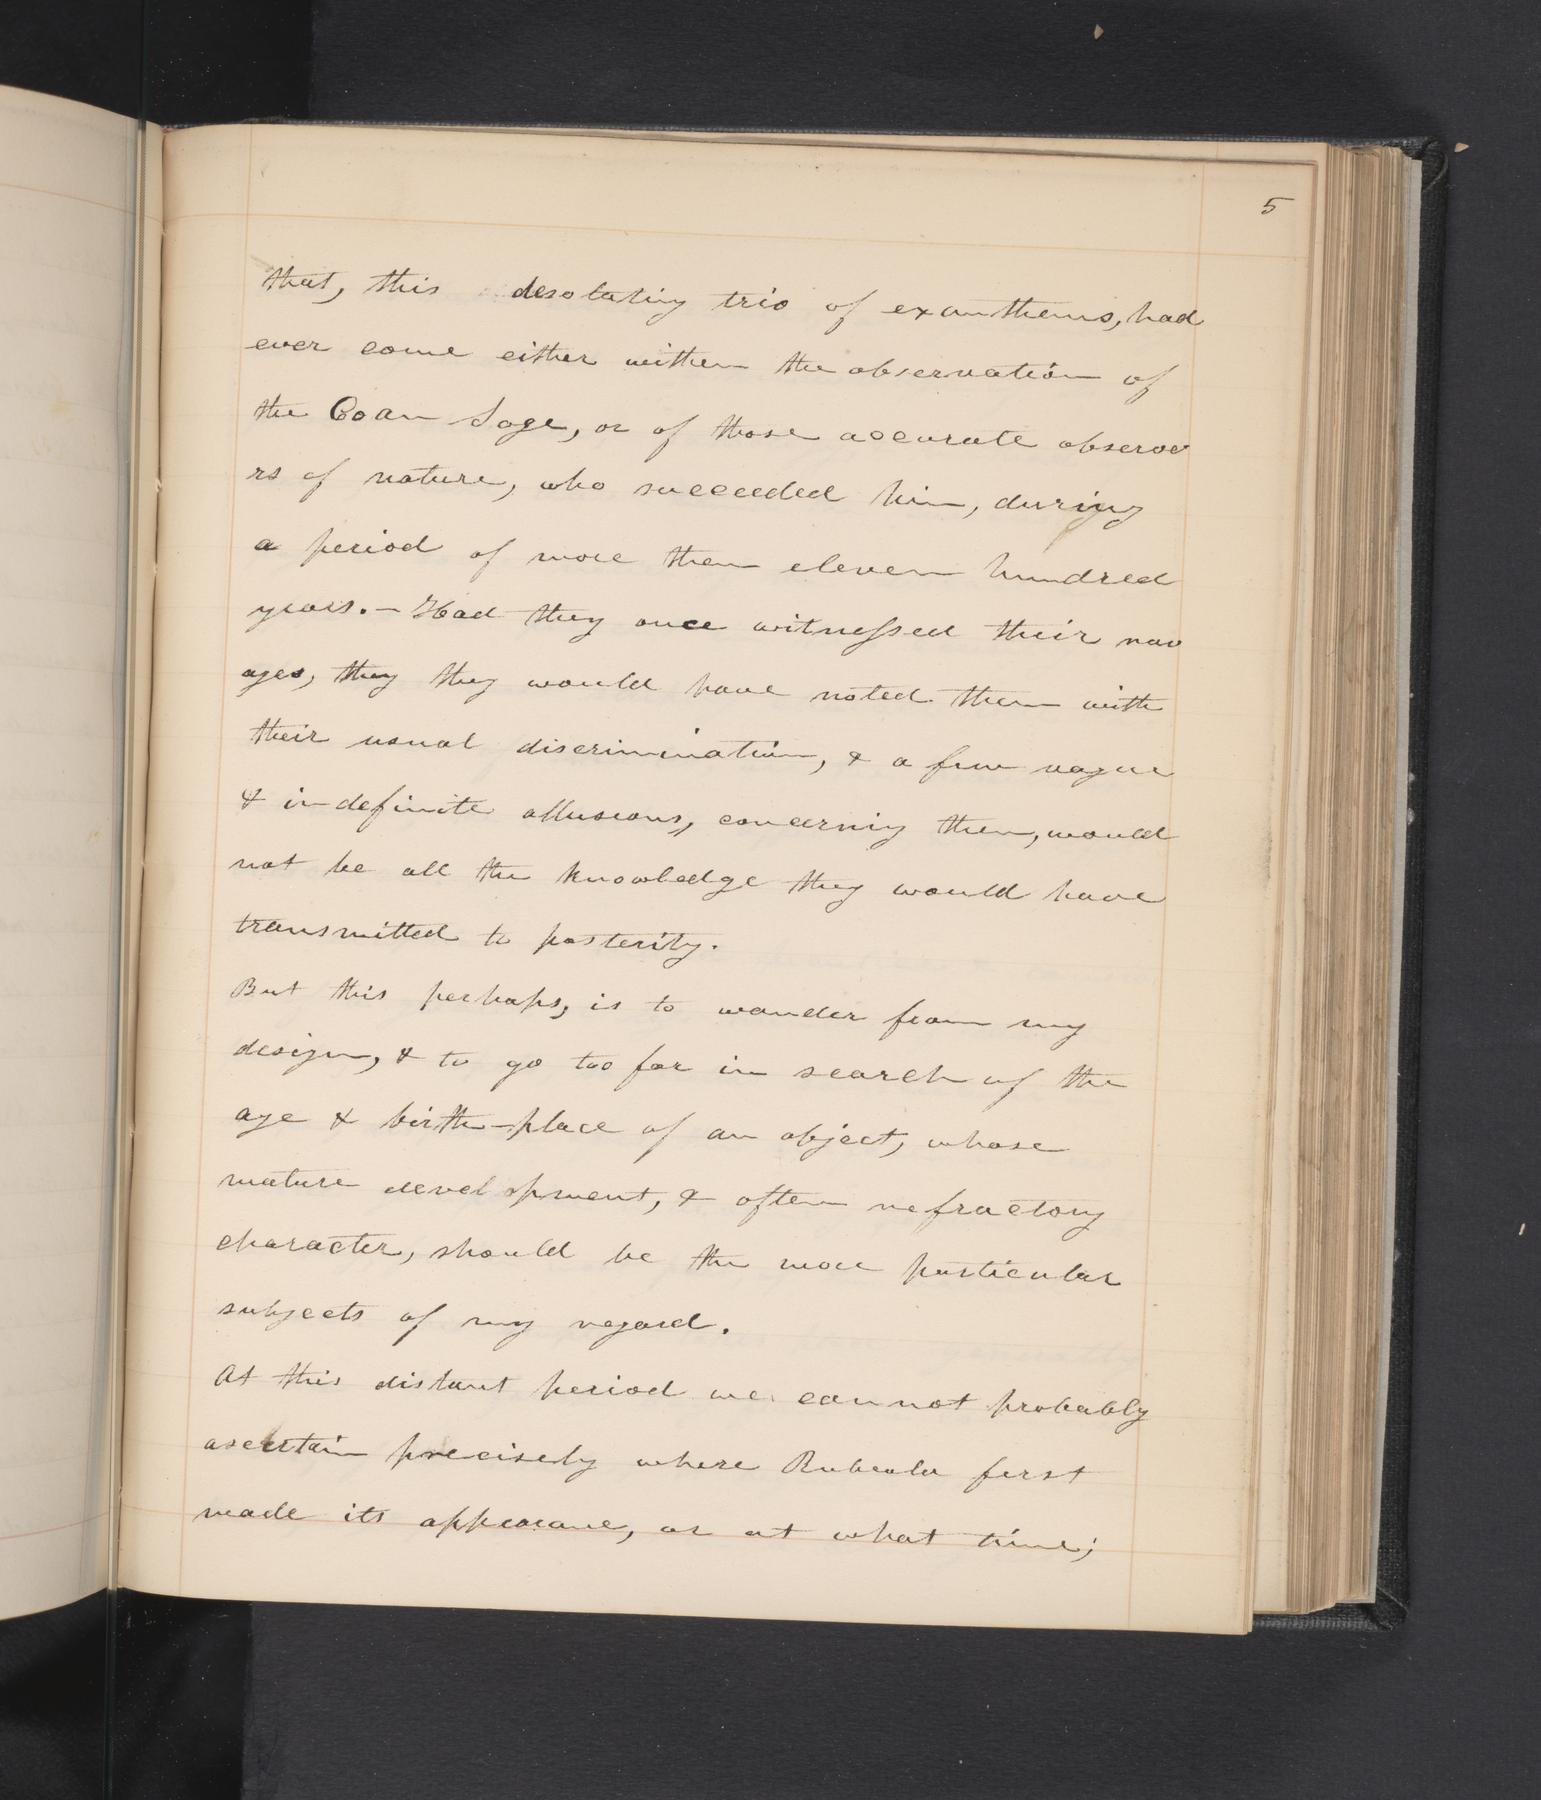 5
that, this desolating trio of exanthems, had
ever come either within the observation of
the Coan Sage, or of those accurate observe
rs of nature, who succeeded him, during
a period of more then eleven hundred
years. – Had they once witnessed their rav
ages, they they would have noted them with
their usual discrimination, & a few vague
& indefinite allusions, concerning them, would
not be all the knowledge they would have
transmitted to posterity.
But this perhaps, is to wander from my
design, & to go too far in search of the
age & birth-place of an object, whose
mature development, & often refractory
character, should be the more particular
subjects of my regard.
At this distant period we cannot probably
ascertain precisely where Rubeola first
made its appearane, or at what time;